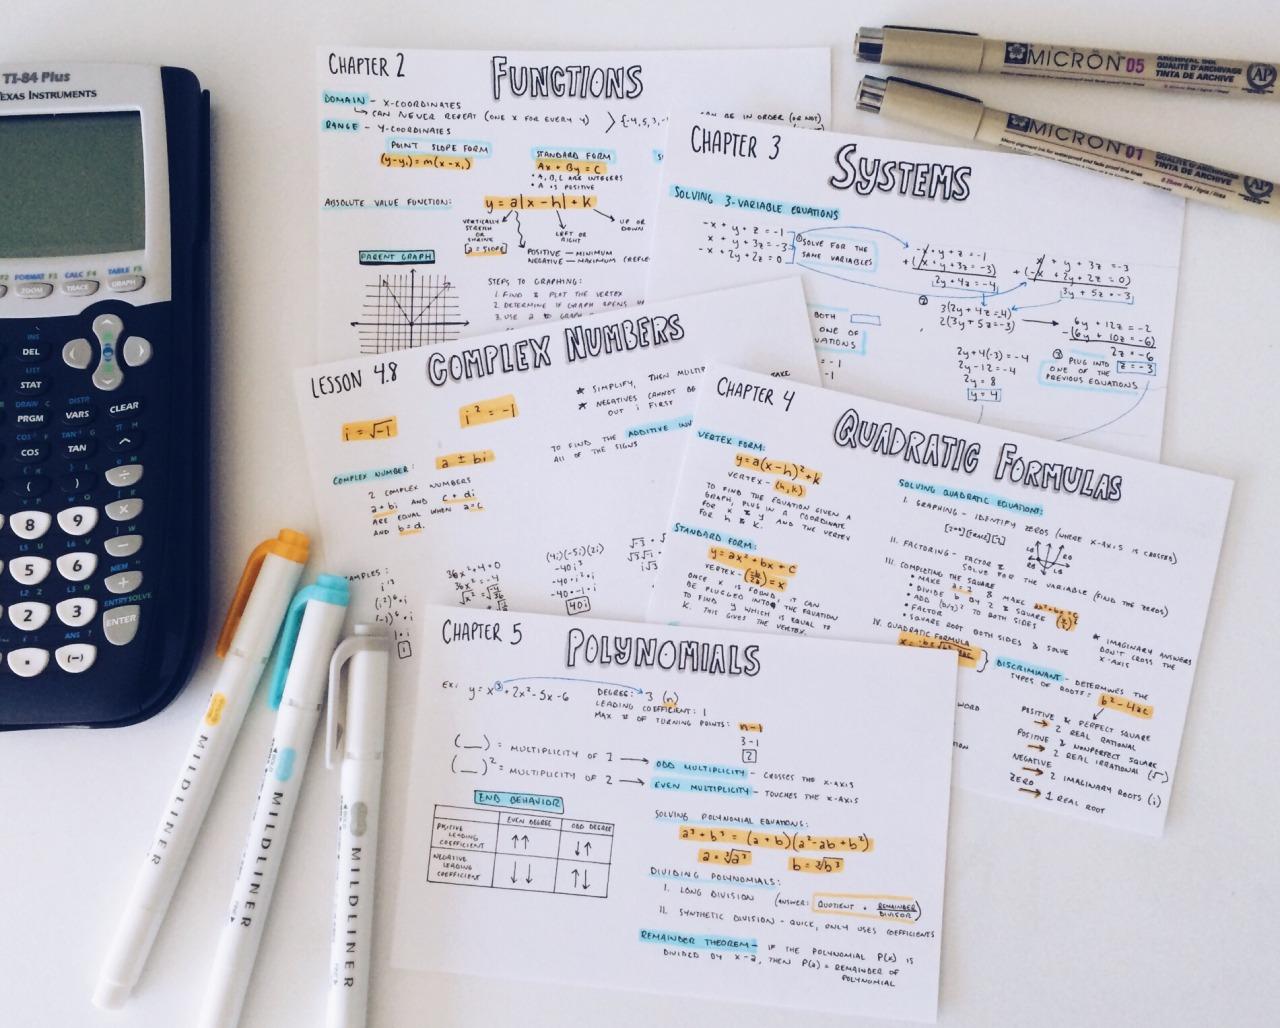 TI-84 Plus
TEXAS INSTRUMENTS
F2 FORMAT F3 CALC F4 TABLE F5
ZOOM TRACE GRAPH
INS
DEL
LIST
STAT
DRAW C DISTR
PRGM VARS CLEAR
COS TAN
( )
8 9
5 6
2 3
ENTRY SOLVE
ENTER
ANS ?
. (-)
MICRON 05
ARCHIVAL INK
QUALITÉ D'ARCHIVAGE
TINTA DE ARCHIVE
AP
MICRON 01
QUALITÉ D'ARCHIVAGE
TINTA DE ARCHIVE
MILDLINER
MILDLINER
MILDLINER
CHAPTER 2
FUNCTIONS
DOMAIN - X-COORDINATES
CAN NEVER REPEAT (ONE X FOR EVERY Y)
RANGE - Y-COORDINATES
{-4,5,3,-
CAN BE IN ORDER (OR NOT)
POINT SLOPE FORM
(y-y₁) = m(x-x₁)
STANDARD FORM
Ax + By = C
• A, B, C ARE INTEGERS
• A IS POSITIVE
ABSOLUTE VALUE FUNCTION:
y = a|x-h|+k
VERTICALLY
STRETCH
OR
SHRINK
a = SLOPE
LEFT OR
RIGHT
UP OR
DOWN
POSITIVE — MINIMUM
NEGATIVE — MAXIMUM (REFLE
PARENT GRAPH
STEPS TO GRAPHING:
1. FIND & PLOT THE VERTEX
2. DETERMINE IF GRAPH OPENS
3. USE a TO GRAPH
CHAPTER 3
SYSTEMS
SOLVING 3-VARIABLE EQUATIONS
-x + y + z = -1
x + y + 3z = -3
-x + 2y + 2z = 0
① SOLVE FOR THE
SAME VARIABLES
-x + y + z = -1
+(x + y + 3z = -3)
2y + 4z = -4
x + y + 3z = -3
+(-x + 2y + 2z = 0)
3y + 5z = -3
②
3(2y + 4z = -4)
2(3y + 5z = -3)
6y + 12z = -2
-(6y + 10z = -6)
2z = -6
z = -3
2y + 4(-3) = -4
2y - 12 = -4
2y = 8
y = 4
③ PLUG INTO
ONE OF THE
PREVIOUS EQUATIONS
BOTH
ONE OF
UATIONS
= -1
-1
LESSON 4.8
COMPLEX NUMBERS
i = √-1
i² = -1
★ SIMPLIFY, THEN MULTIP
TAKE
★ NEGATIVES CANNOT BE
OUT i FIRST
COMPLEX NUMBER:
a ± bi
TO FIND THE ADDITIVE INV
ALL OF THE SIGNS
2 COMPLEX NUMBERS
a + bi AND c + di
ARE EQUAL WHEN a=c
AND b=d.
AMPLES:
i¹³
(i²)⁶ • i
(-1)⁶ • i
1 • i
i
36x² + 4 = 0
36x² = -4
(4i)(-5i)(2i)
-40i³
-40 • i² • i
-40 • -1 • i
40i
CHAPTER 4
QUADRATIC FORMULAS
VERTEX FORM:
y = a(x-h)² + k
VERTEX - (h, k)
TO FIND THE EQUATION GIVEN A
GRAPH, PLUG IN A COORDINATE
FOR X & Y AND THE VERTEX
FOR h & k.
STANDARD FORM:
y = ax² + bx + c
VERTEX - (-b/2a) = x
ONCE X IS FOUND, IT CAN
BE PLUGGED INTO THE EQUATION
TO FIND Y WHICH IS EQUAL TO
K. THIS GIVES THE VERTEX.
SOLVING QUADRATIC EQUATIONS:
I. GRAPHING - IDENTIFY ZEROS (WHERE X-AXIS IS CROSSED)
[2nd][TRACE][2]
LB RB
LB RB
II. FACTORING - FACTOR &
SOLVE FOR THE VARIABLE (FIND THE ZEROS)
III. COMPLETING THE SQUARE
• MAKE a=1 & MAKE
• DIVIDE b BY 2 & SQUARE
• ADD (b/2)² TO BOTH SIDES
• FACTOR
• SQUARE ROOT BOTH SIDES & SOLVE
IV. QUADRATIC FORMULA
★ IMAGINARY ANSWERS
DON'T CROSS THE
X-AXIS
DISCRIMINANT - DETERMINES THE
TYPES OF ROOTS:
b² - 4ac
POSITIVE & PERFECT SQUARE
→ 2 REAL RATIONAL
POSITIVE & NONPERFECT SQUARE
→ 2 REAL IRRATIONAL (√)
NEGATIVE
→ 2 IMAGINARY ROOTS (i)
ZERO
→ 1 REAL ROOT
WORD
CHAPTER 5
POLYNOMIALS
EX: y = x³ + 2x² - 5x - 6
DEGREE: 3 (n)
LEADING COEFFICIENT: 1
MAX # OF TURNING POINTS: n-1
3-1
2
(__) = MULTIPLICITY OF 1 → ODD MULTIPLICITY - CROSSES THE X-AXIS
(__)² = MULTIPLICITY OF 2 → EVEN MULTIPLICITY - TOUCHES THE X-AXIS
END BEHAVIOR
EVEN DEGREE ODD DEGREE
POSITIVE LEADING COEFFICIENT ↑↑ ↓↑
NEGATIVE LEADING COEFFICIENT ↓↓ ↑↓
SOLVING POLYNOMIAL EQUATIONS:
a³ + b³ = (a + b)(a² - ab + b²)
a = ∛a³ b = ∛b³
DIVIDING POLYNOMIALS:
I. LONG DIVISION (ANSWER: QUOTIENT + REMAINDER/DIVISOR)
II. SYNTHETIC DIVISION - QUICK, ONLY USES COEFFICIENTS
REMAINDER THEOREM - IF THE POLYNOMIAL P(x) IS
DIVIDED BY x-a, THEN P(a) = REMAINDER OF
POLYNOMIAL